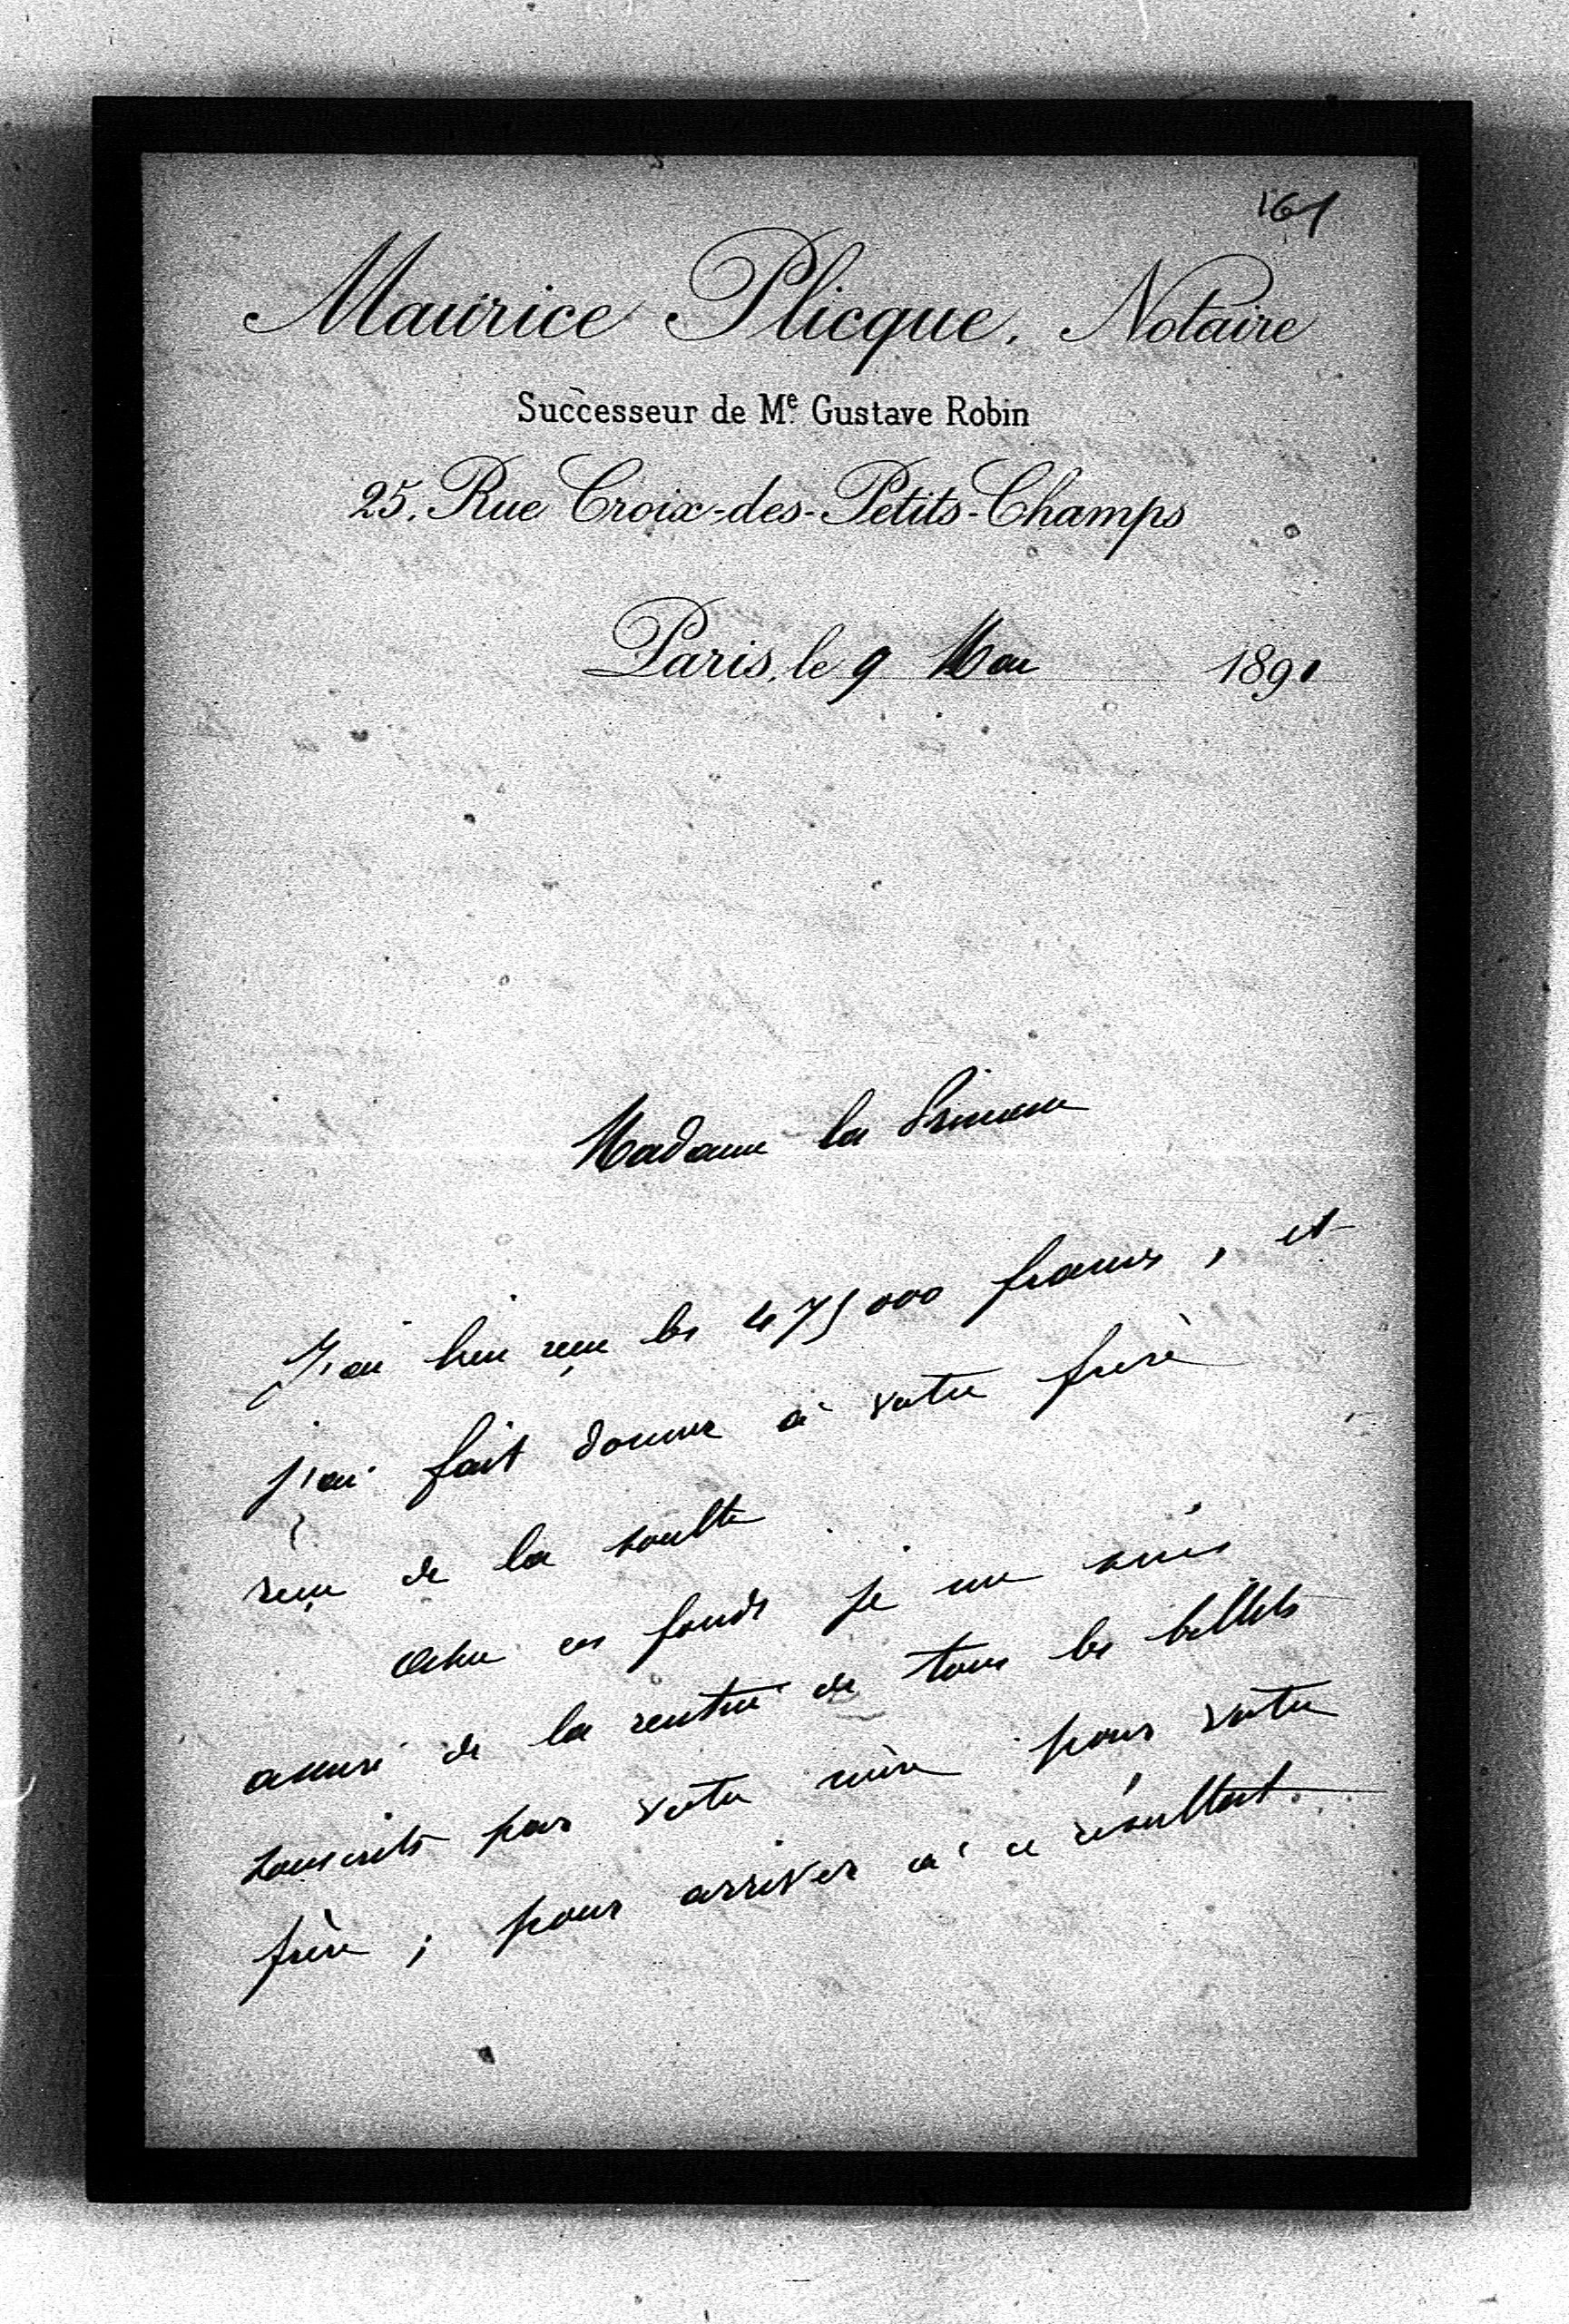 161
Maurice Plicque, Notaire
Successeur de Me Gustave Robin
25, Rue Croix-des-Petits-Champs
Paris, le 9 Mai 1891
Madame la Princesse
J'ai bien reçu les 475000 francs, et
j'ai fait donner à votre frère
reçu de la soulte
Avec ces fonds je me suis
assuré de la rentrée de tous les billets
souscrits par votre mère pour votre
frère ; pour arriver à ce résultat